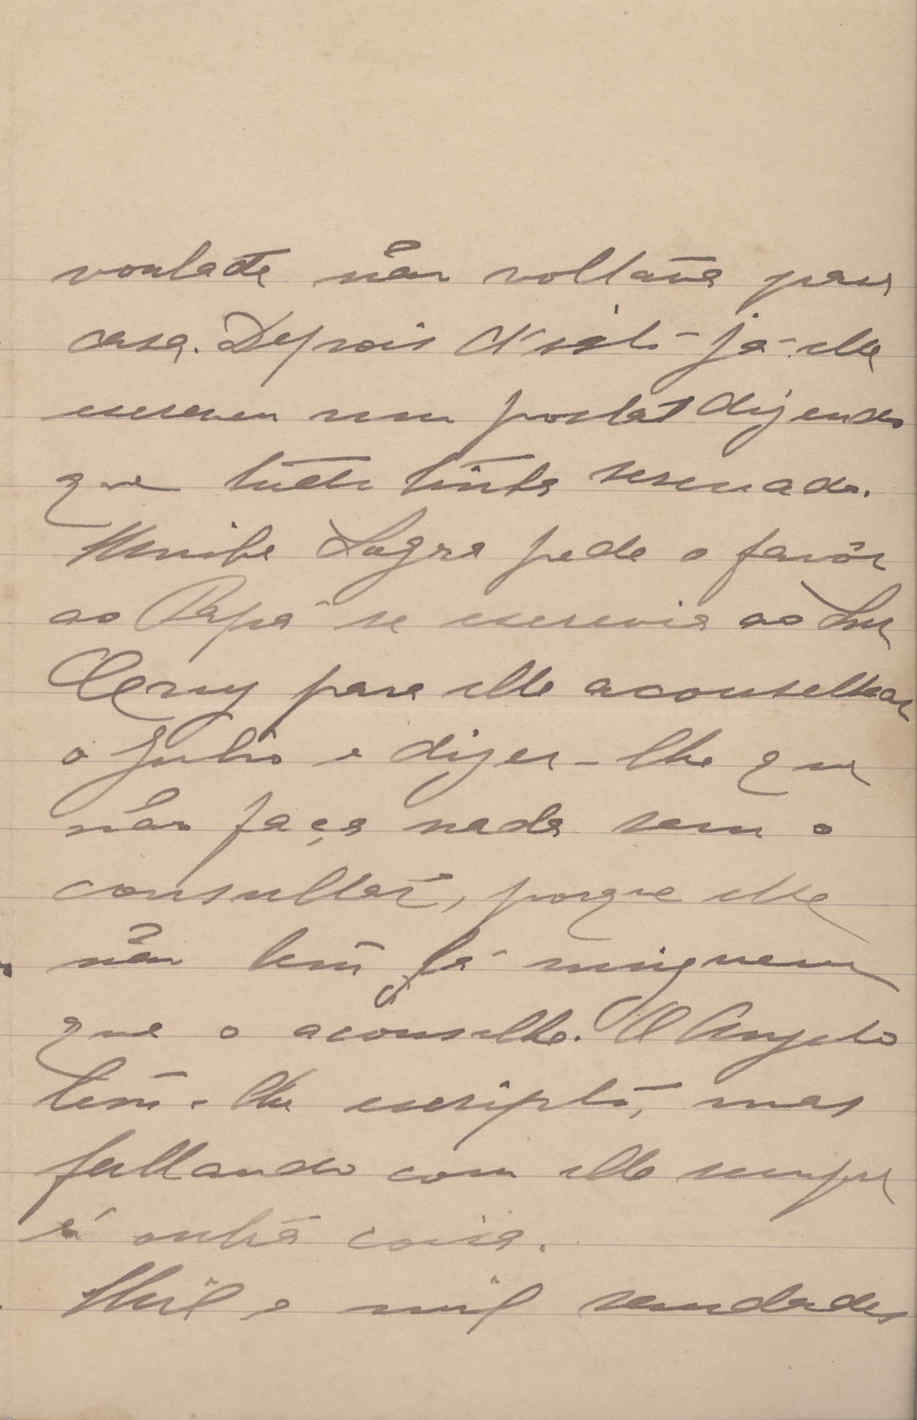 vontade não voltava para
casa. Depois d'isto já elle
escreveu um postal dizendo
que tudo tinha serenado.
Minha Sogra pede o favôr
ao Papá se escrevia ao Snr
Cleruy para elle aconselhar
o Julio e dizer-lhe que
não faça nada sem o
consultar, porque elle
não tem lá ninguem
que o aconselhe. O Angelo
tem-lhe escripto, mas
fallando com elle sempre
é outra coisa.
Mil e mil saudades